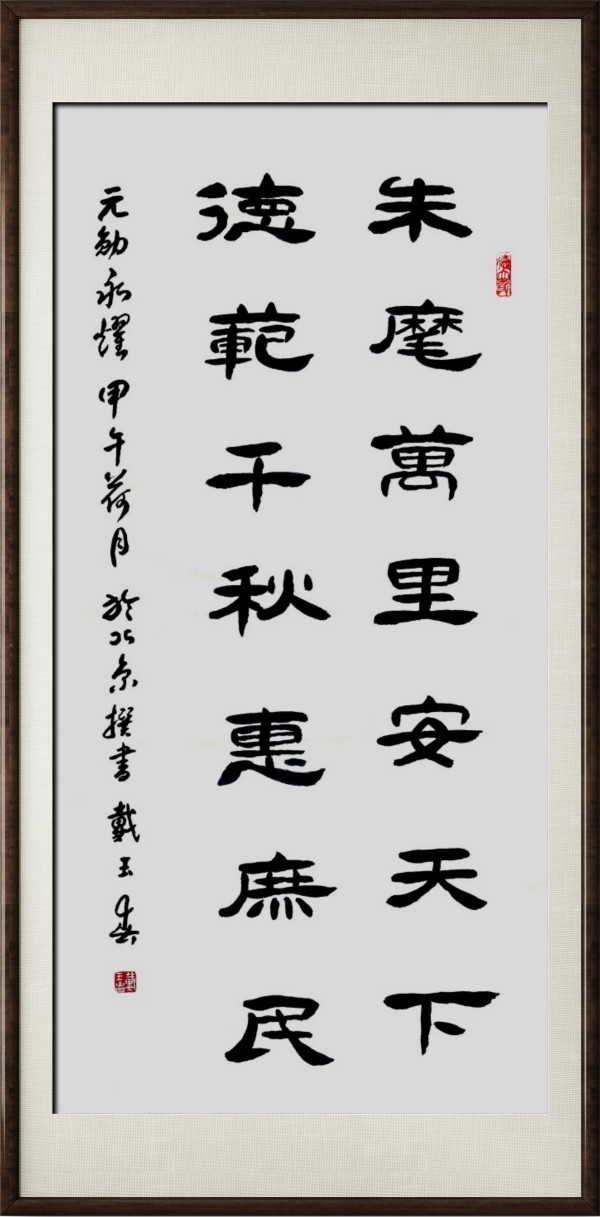 朱麾萬里安天下
德範千秋惠庶民
元勛永耀 甲午荷月 於北京撰書 戴玉春